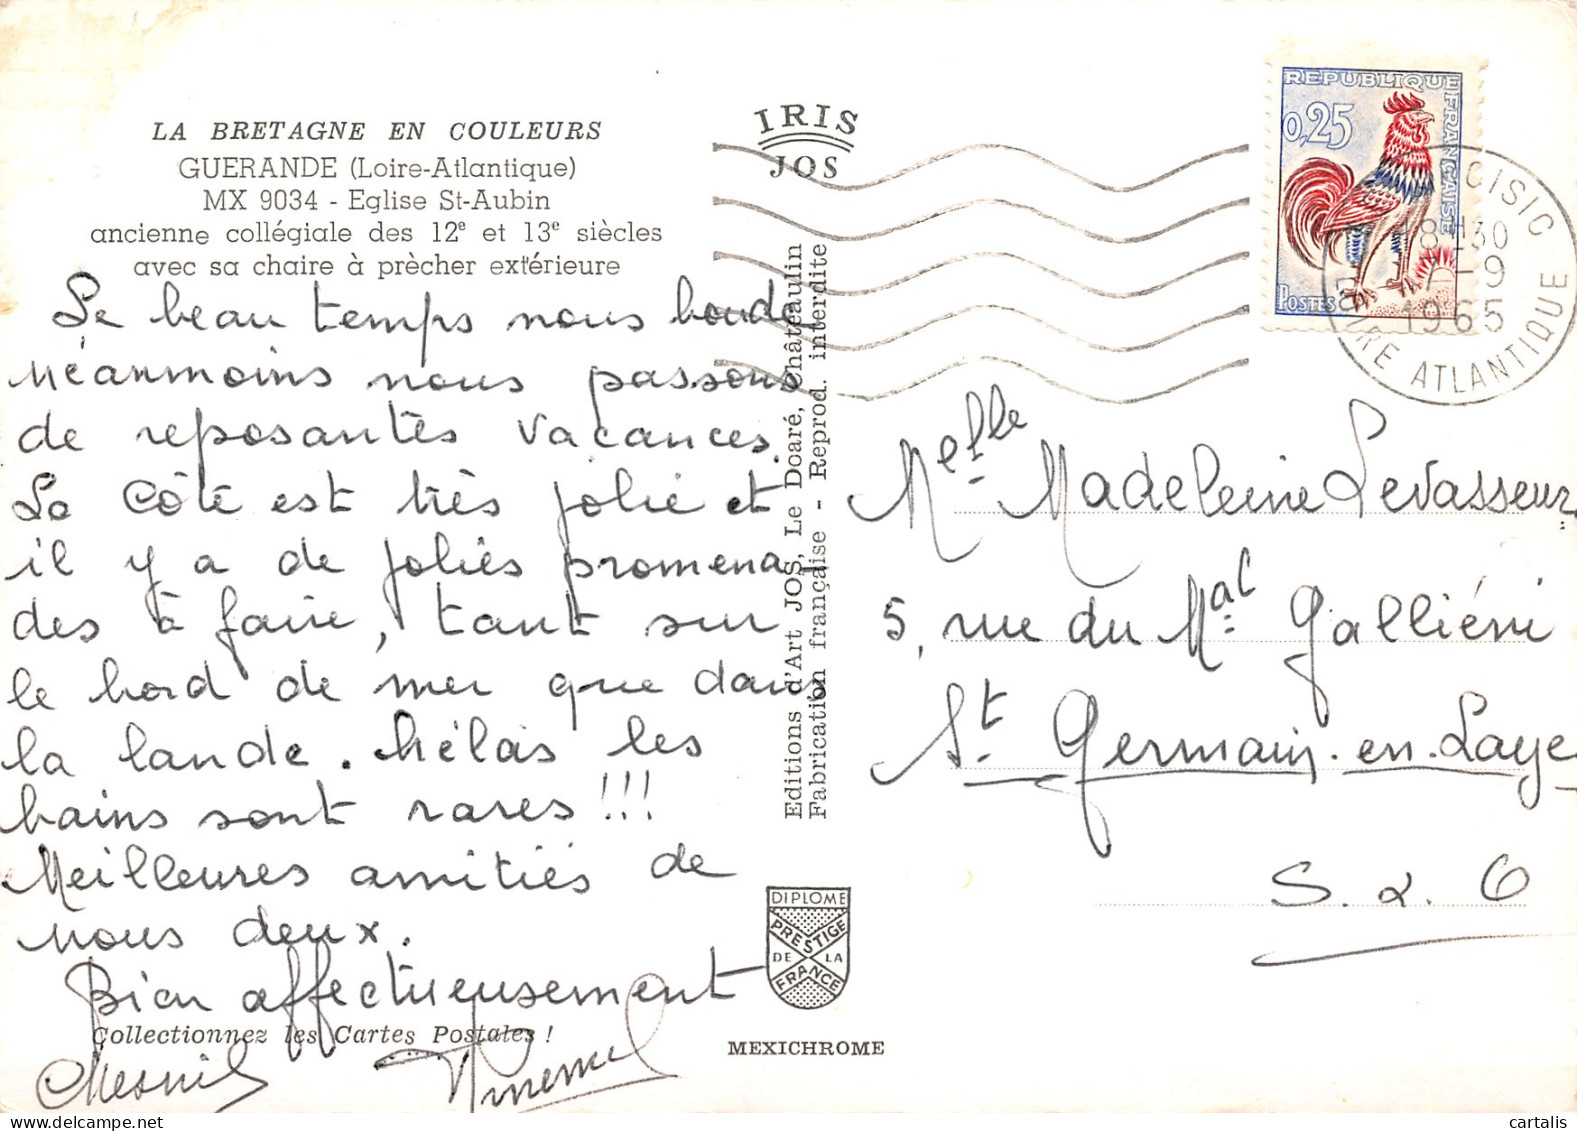 LA BRETAGNE EN COULEURS
GUERANDE (Loire-Atlantique)
MX 9034 - Eglise St-Aubin
ancienne collégiale des 12e et 13e siècles
avec sa chaire à prècher extérieure
Le beau temps nous boude
néanmoins nous passons
de reposantes vacances.
La côte est très jolie et
il y a de jolies promena
des à faire, tant sur
le bord de mer que dans
la lande. hélas les
bains sont rares !!!
Meilleures amitiés de
nous deux.
Bien affectueusement
Collectionnez les Cartes Postales !
Mesnil
IRIS
JOS
Editions d'Art JOS, Le Doaré, Châteaulin
Fabrication française - Reprod. interdite
DIPLOME
PRESTIGE
DE LA
FRANCE
MEXICHROME
REPUBLIQUE
FRANÇAISE
0,25
POSTES
CISIC
18H30
-9
1965
LOIRE ATLANTIQUE
Melle Madeleine Levasseur
5, rue du Mal Galliéni
St Germain-en-Laye
S. & O
cartalis